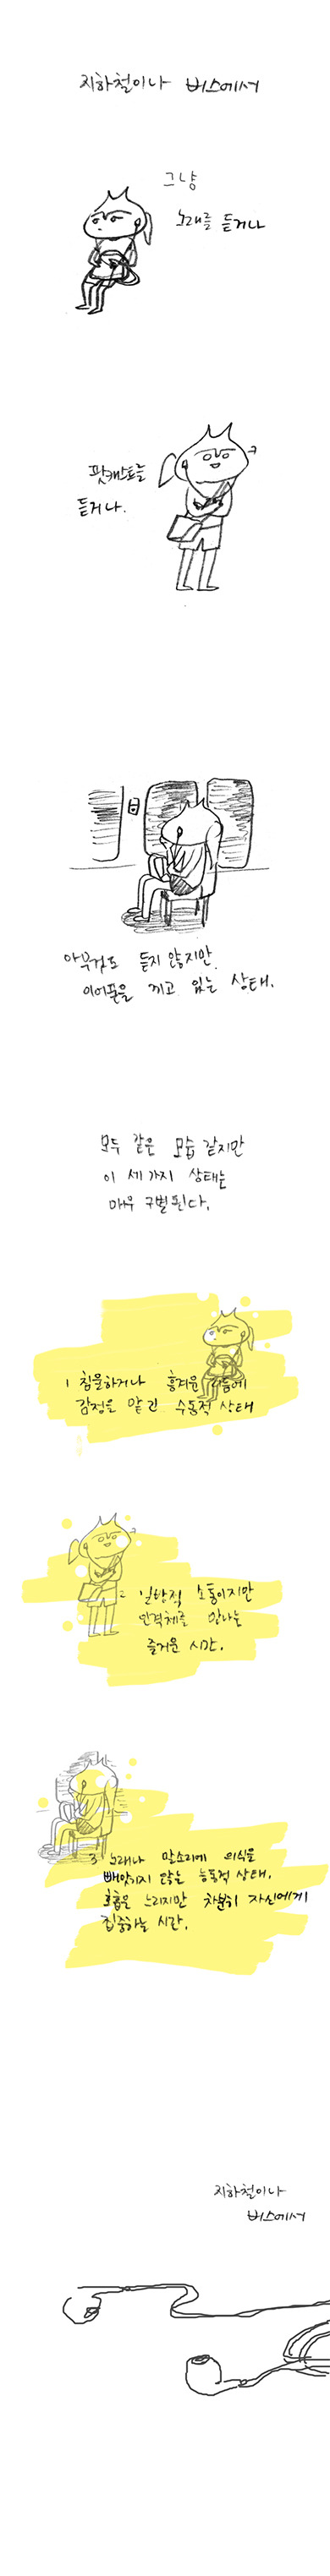 지하철이나 버스에서
그냥
노래를 듣거나
팟캐스트를
듣거나.
아무것도 듣지 않지만
이어폰을 끼고 있는 상태.
모두 같은 모습 같지만
이 세 가지 상태는
매우 구별된다.
1 침울하거나 흥겨운 리듬에
감정을 맡긴 수동적 상태
2 일방적 소통이지만
인격체를 만나는
즐거운 시간.
3 노래나 말소리에 의식을
빼앗기지 않는 능동적 상태.
호흡은 느리지만 차분히 자신에게
집중하는 시간.
지하철이나
버스에서